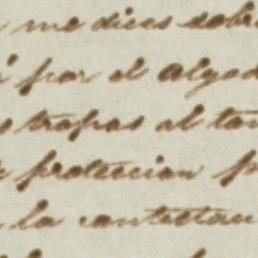 me dices sobr
por el algod
trapos al tan
proteccion p
la contestan